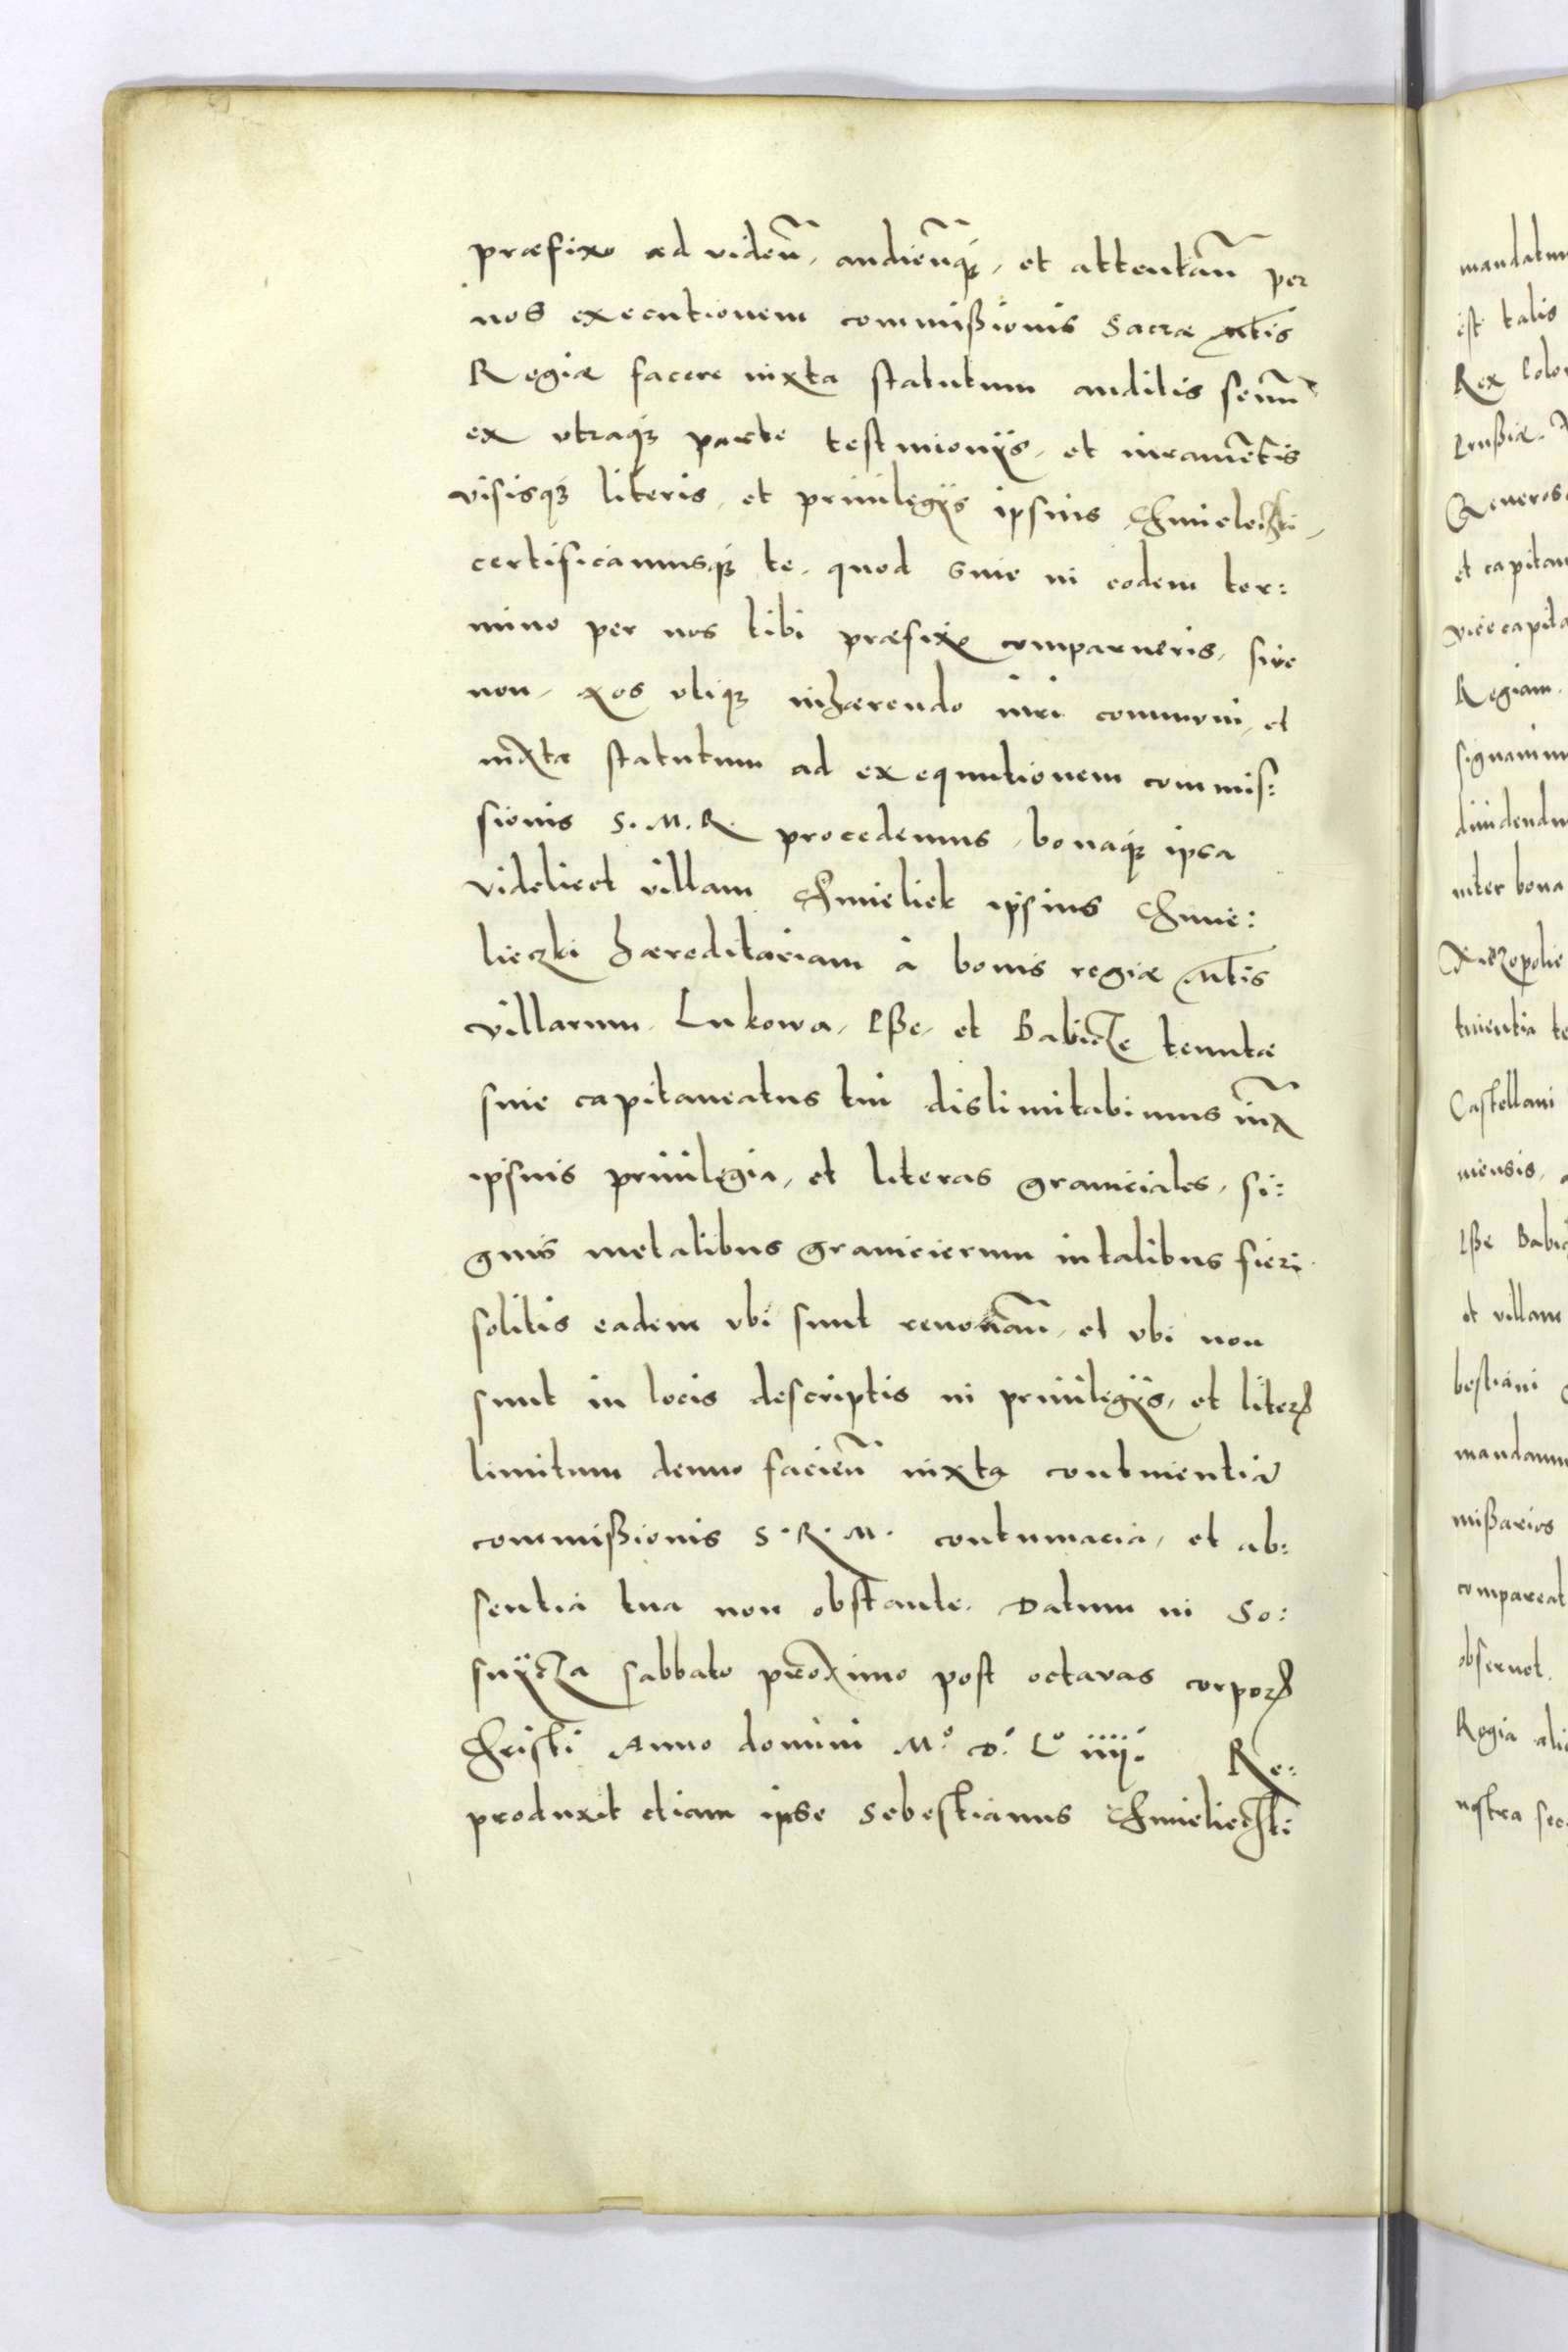 præfixo ad videñ, audieñq;, et attentañ per
nos executionem commißionis Sacræ Mtis
Regiæ facere iuxta statutum auditis senũ
ex vtraq; parte testimonijs, et iuramẽtis
visisq; literis, et priuilegijs ipsius Chmieleczki,
certificamusq; te, quod siue in eodem ter:
mino per nos tibi præfixo comparueris, siue
non, Nos vtiq; inhærendo iuri communi, et
iuxta statutum ad exequutionem commis:
sionis S. M. R. procedemus, bonaq; ipsa
videlicet villam Chmieliek ipsius Chmie:
lieczki hæreditariam à bonis regiæ Mtis
villarum, Lukowa, Pße, et Babicze tenutæ
siue capitaneatus tui dislimitabimus iux̃
ipsius priuilegia, et literas graniciales, si:
gnis metalibus granicierum in talibus fieri
solitis eadem vbi sunt renouañ, et vbi non
sunt in locis descriptis in priuilegijs, et literis
limitum denuo facieñ iuxta continentiã
commißionis S. R. M. contumacia, et ab:
sentia tua non obstante. Datum in So:
snycza sabbato proximo post octauas corporis
Christi Anno domini Mº. Dº. Lº iiijº. Re:
produxit etiam ipse Sebestianus Chmielieczki
mandatum
est talis
Rex Polo
Prußiæ.
Generos
et capitan
vicecapita
Regiam.
signauim
diuidendu
inter bona
Krzezopolie
tinentia te
Castellani
miensis, a
Pße Babic
et villam
bestiani
mandamu
mißarios
compareat
obseruet.
Regia ali
nostra sec